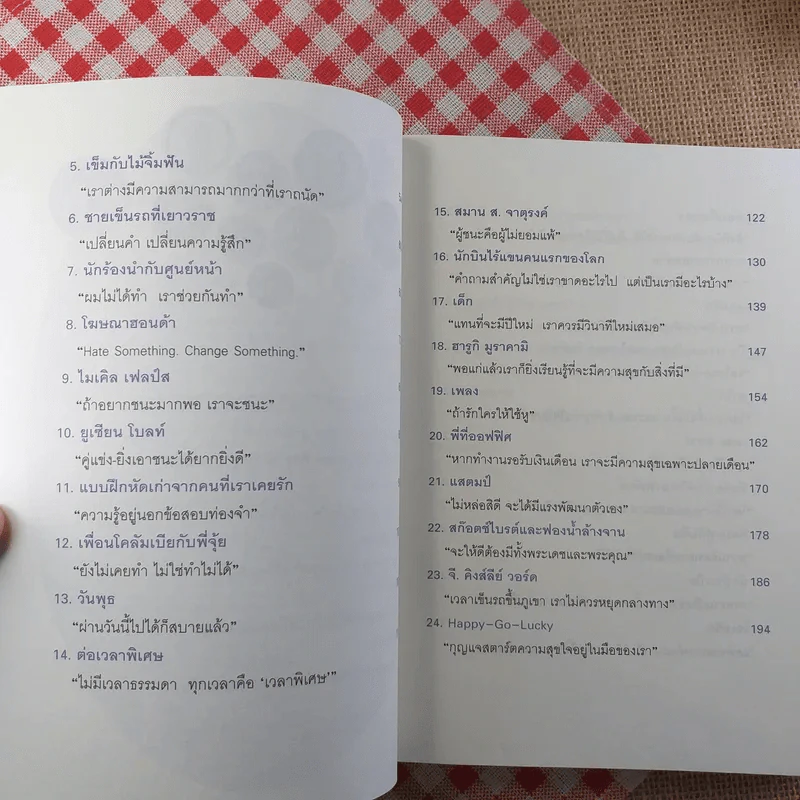 5. เข็มกับไม้จิ้มฟัน
“เราต่างมีความสามารถมากกว่าที่เราถนัด”
6. ชายเข็นรถที่เยาวราช
“เปลี่ยนคำ เปลี่ยนความรู้สึก”
7. นักร้องนำกับศูนย์หน้า
“ผมไม่ได้ทำ เราช่วยกันทำ”
8. โฆษณาฮอนด้า
“Hate Something. Change Something.”
9. ไมเคิล เฟลป์ส
“ถ้าอยากชนะมากพอ เราจะชนะ”
10. ยูเซียน โบลท์
“คู่แข่ง-ยิ่งเอาชนะได้ยากยิ่งดี”
11. แบบฝึกหัดเก่าจากคนที่เราเคยรัก
“ความรู้อยู่นอกข้อสอบท่องจำ”
12. เพื่อนโคลัมเบียกับพี่จุ้ย
“ยังไม่เคยทำ ไม่ใช่ทำไม่ได้”
13. วันพุธ
“ผ่านวันนี้ไปได้ก็สบายแล้ว”
14. ต่อเวลาพิเศษ
“ไม่มีเวลาธรรมดา ทุกเวลาคือ ‘เวลาพิเศษ’”
15. สมาน ส. จาตุรงค์ 122
“ผู้ชนะคือผู้ไม่ยอมแพ้”
16. นักบินไร้แขนคนแรกของโลก 130
“คำถามสำคัญไม่ใช่เราขาดอะไรไป แต่เป็นเรามีอะไรบ้าง”
17. เด็ก 139
“แทนที่จะมีปีใหม่ เราควรมีวินาทีใหม่เสมอ”
18. ฮารูกิ มูราคามิ 147
“พอแก่แล้วเราก็ยิ่งเรียนรู้ที่จะมีความสุขกับสิ่งที่มี”
19. เพลง 154
“ถ้ารักใครให้ใช้หู”
20. พี่ที่ออฟฟิศ 162
“หากทำงานรอรับเงินเดือน เราจะมีความสุขเฉพาะปลายเดือน”
21. แสตมป์ 170
“ไม่หล่อสิดี จะได้มีแรงพัฒนาตัวเอง”
22. สก๊อตช์ไบรต์และฟองน้ำล้างจาน 178
“จะให้ดีต้องมีทั้งพระเดชและพระคุณ”
23. จี. คิงส์ลีย์ วอร์ด 186
“เวลาเข็นรถขึ้นภูเขา เราไม่ควรหยุดกลางทาง”
24. Happy-Go-Lucky 194
“กุญแจสตาร์ตความสุขใจอยู่ในมือของเรา”